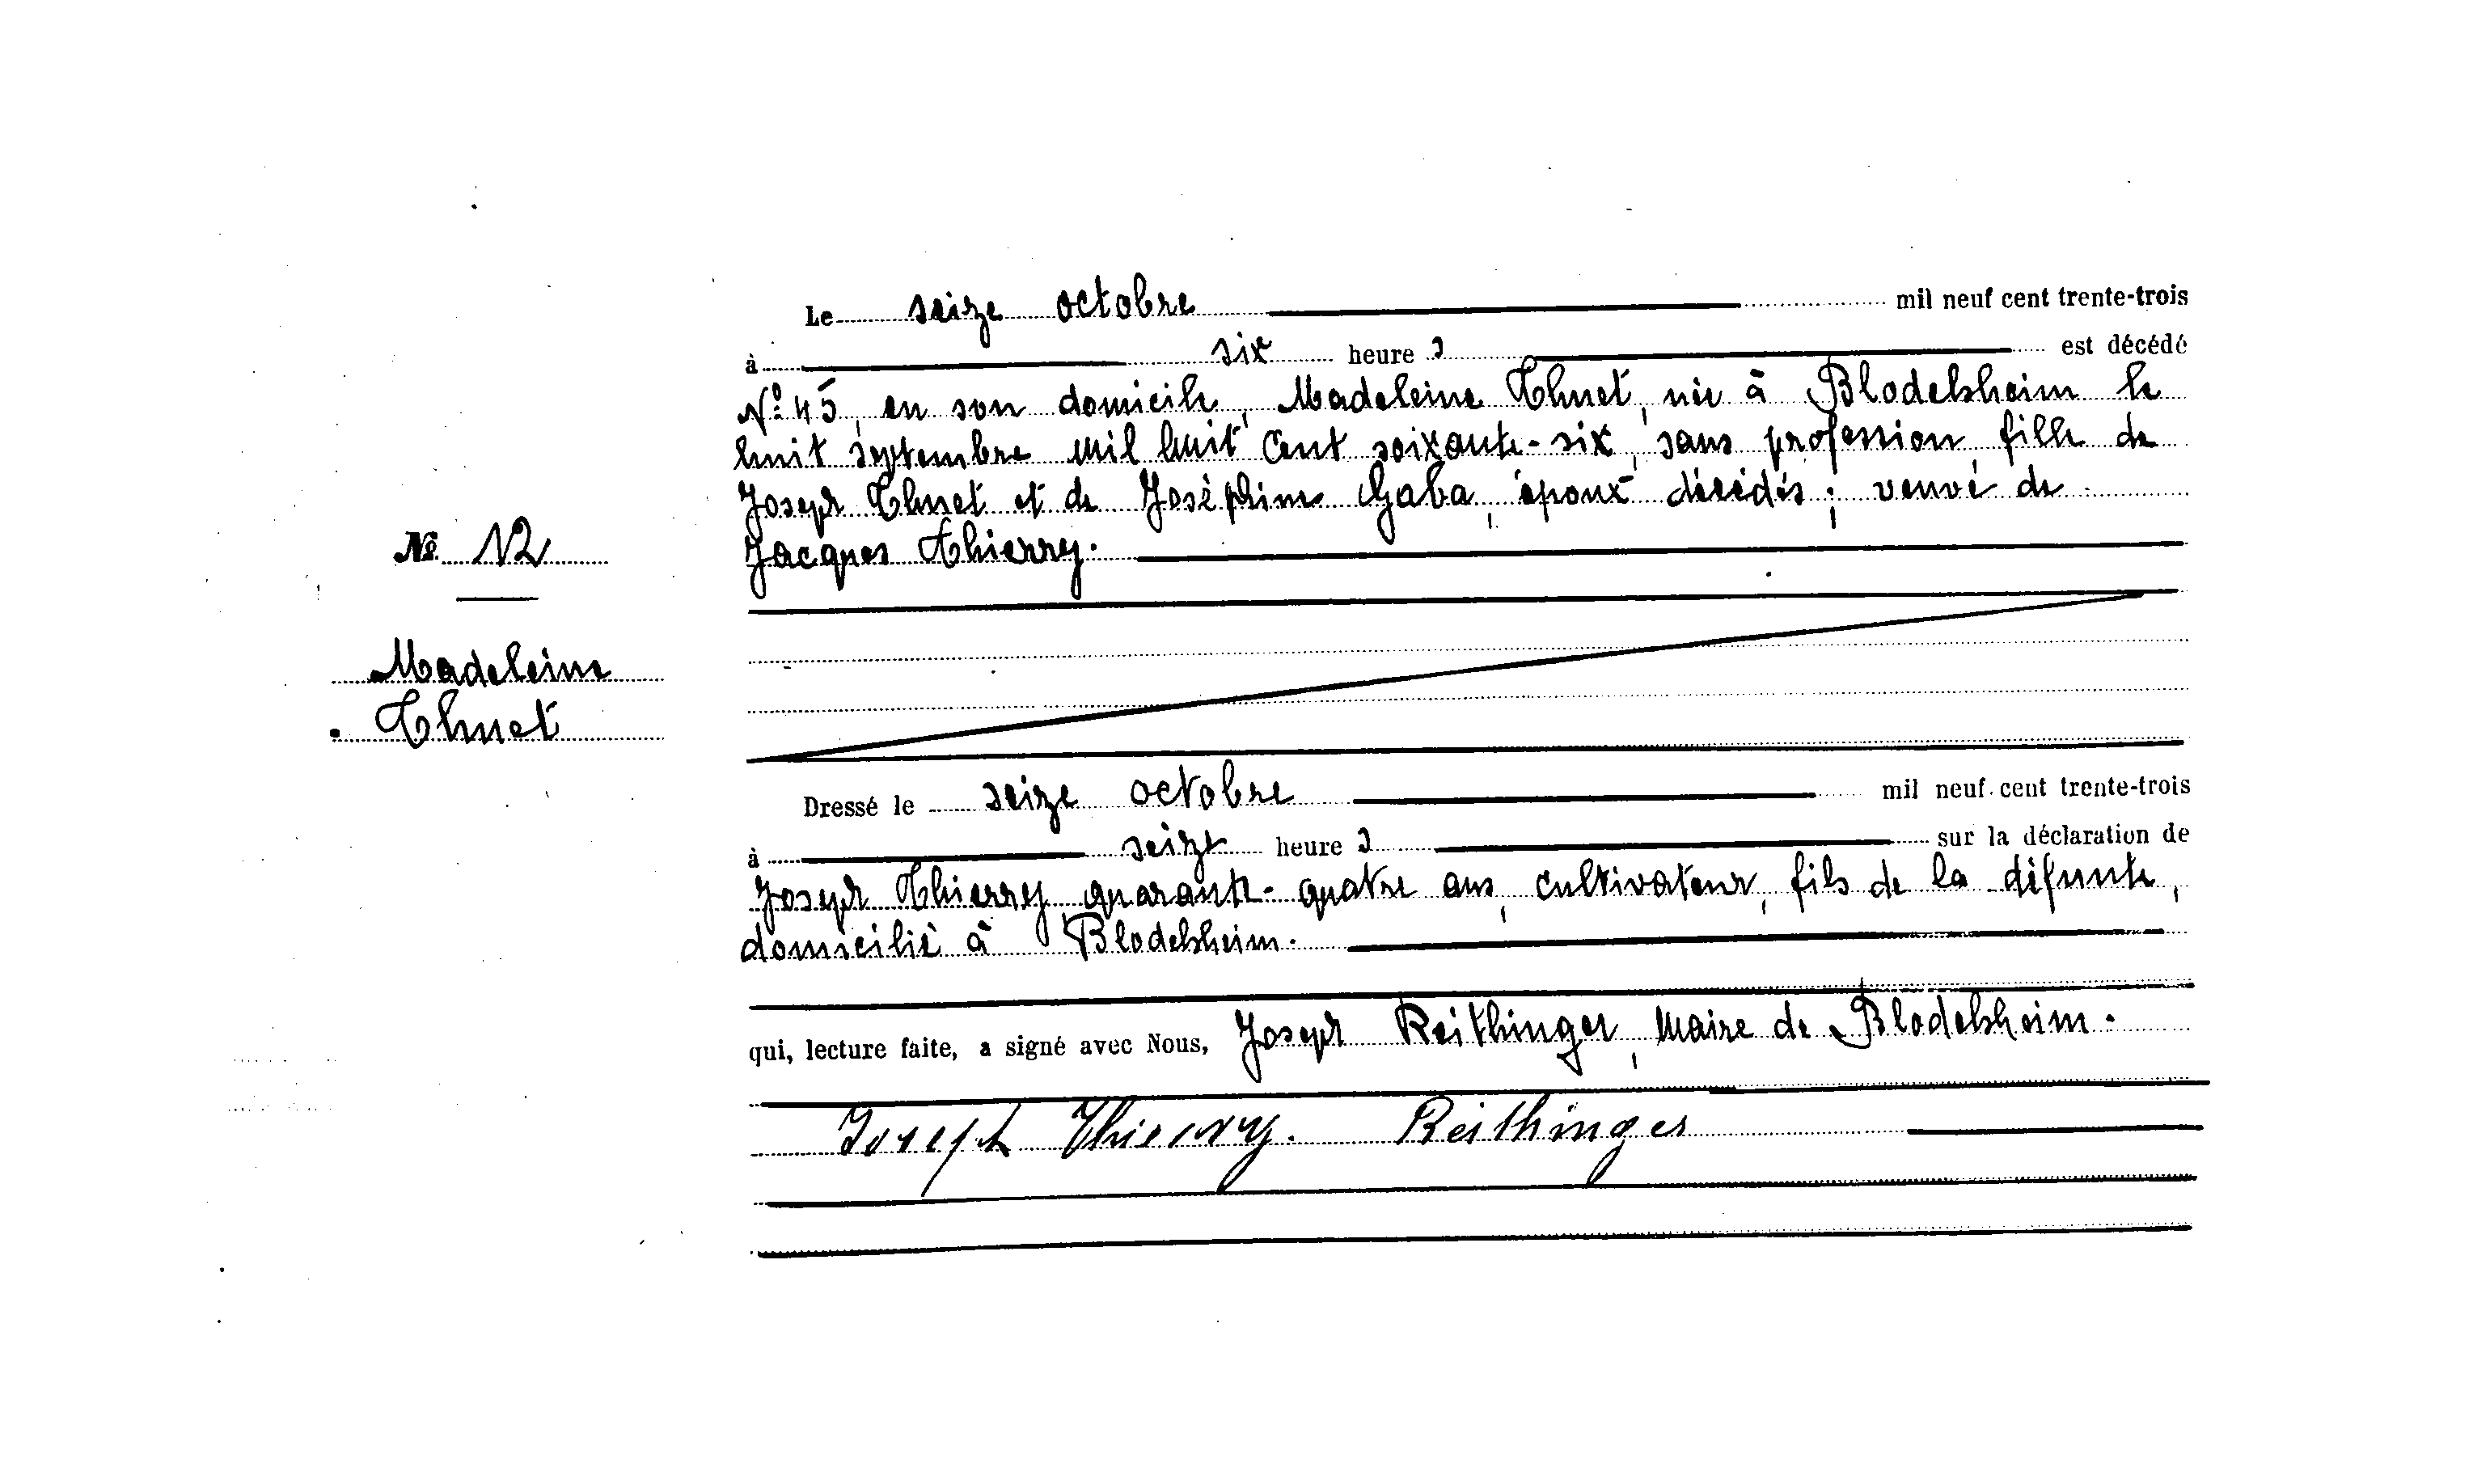 Le seize octobre mil neuf cent trente-trois
à six heure s est décédé
Nº 45, en son domicile, Madeleine Thuet, née à Blodelsheim le
huit septembre mil huit cent soixante-six, sans profession, fille de
Joseph Thuet et de Joséphine Gaba, époux décédés; veuve de
Jacques Thierry.
Nº 12
Madeleine
Thuet
Dressé le seize octobre mil neuf cent trente-trois
à seize heure s sur la déclaration de
Joseph Thierry, quarante-quatre ans, cultivateur, fils de la défunte,
domicilié à Blodelsheim.
qui, lecture faite, a signé avec Nous, Joseph Reithinger, Maire de Blodelsheim.
Joseph Thierry. Reithinger